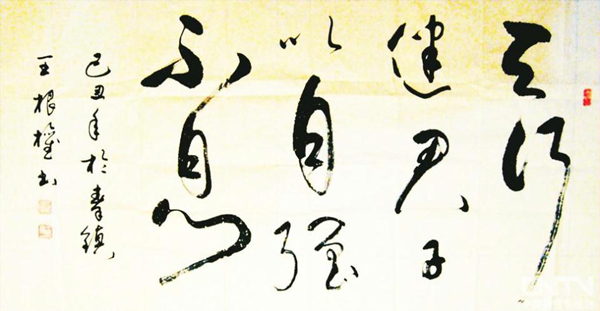 天行
健君子
以自强
不息
己丑年於镇
王根權书